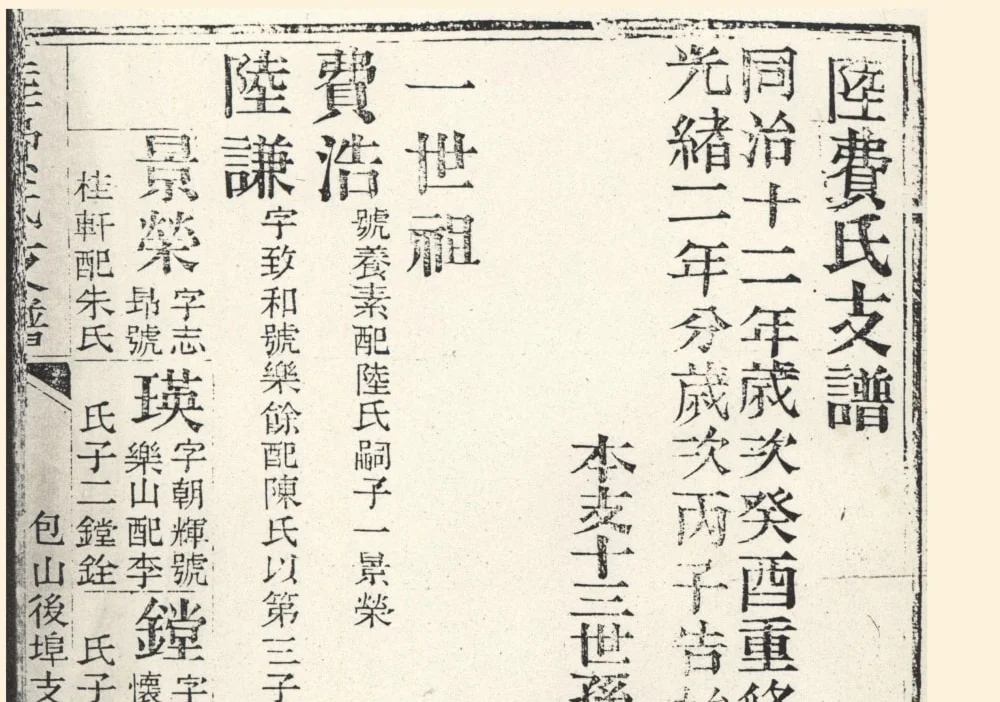 陸費氏支譜
同治十二年歲次癸酉重
光緒二年分歲次丙子告
本支十三世孫
一世祖
費浩 號養素配陸氏嗣子一景榮
陸謙 字致和號樂餘配陳氏以第三子
景榮 字志昻號桂軒配朱氏
瑛 字朝輝號樂山配李氏子二鏜銓
鏜 字懷氏子
包山後埠支